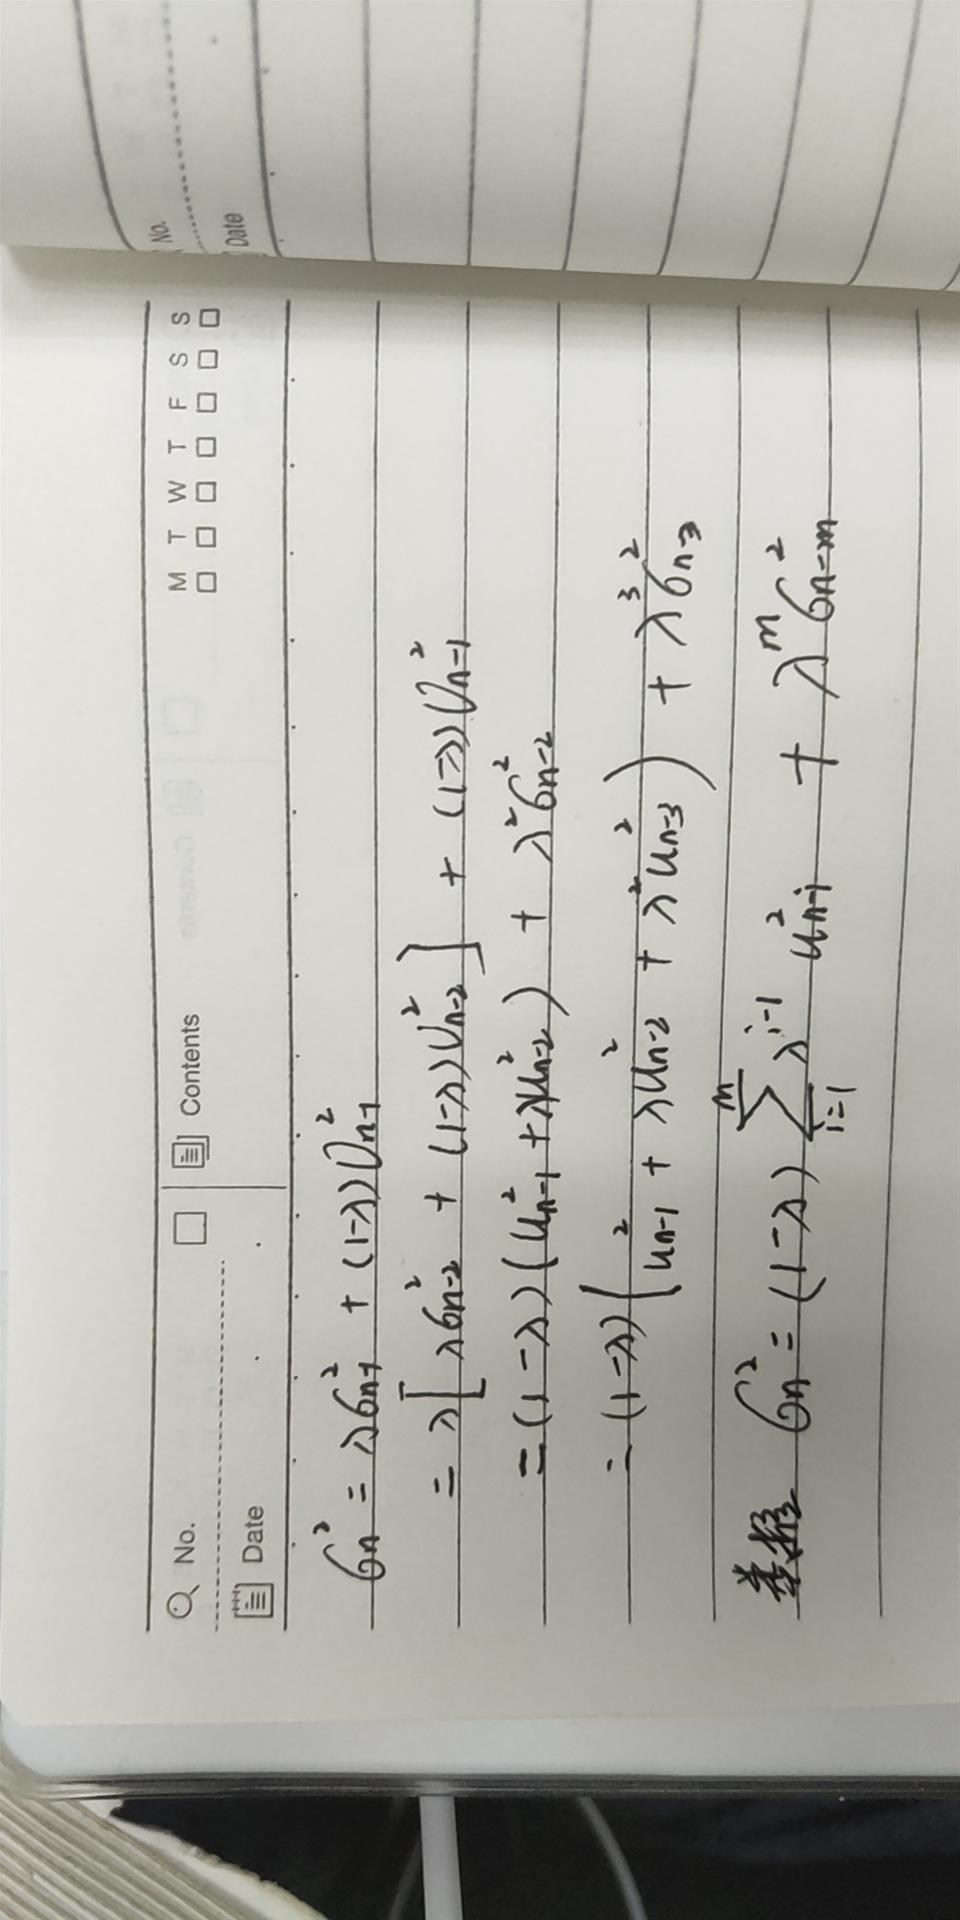 No.
Date
No.
Contents
M T W T F S S
Date
σn² = λσn-1² + (1-λ)Un-1²
= λ[λσn-2² + (1-λ)Un-2²] + (1-λ)Un-1²
= (1-λ)(un-1² + λun-2²) + λ²σn-2²
= (1-λ)(un-1² + λun-2² + λ²un-3²) + λ³σn-3²
类推 σn² = (1-λ) ∑i=1m λi-1 un-i² + λmσn-m²